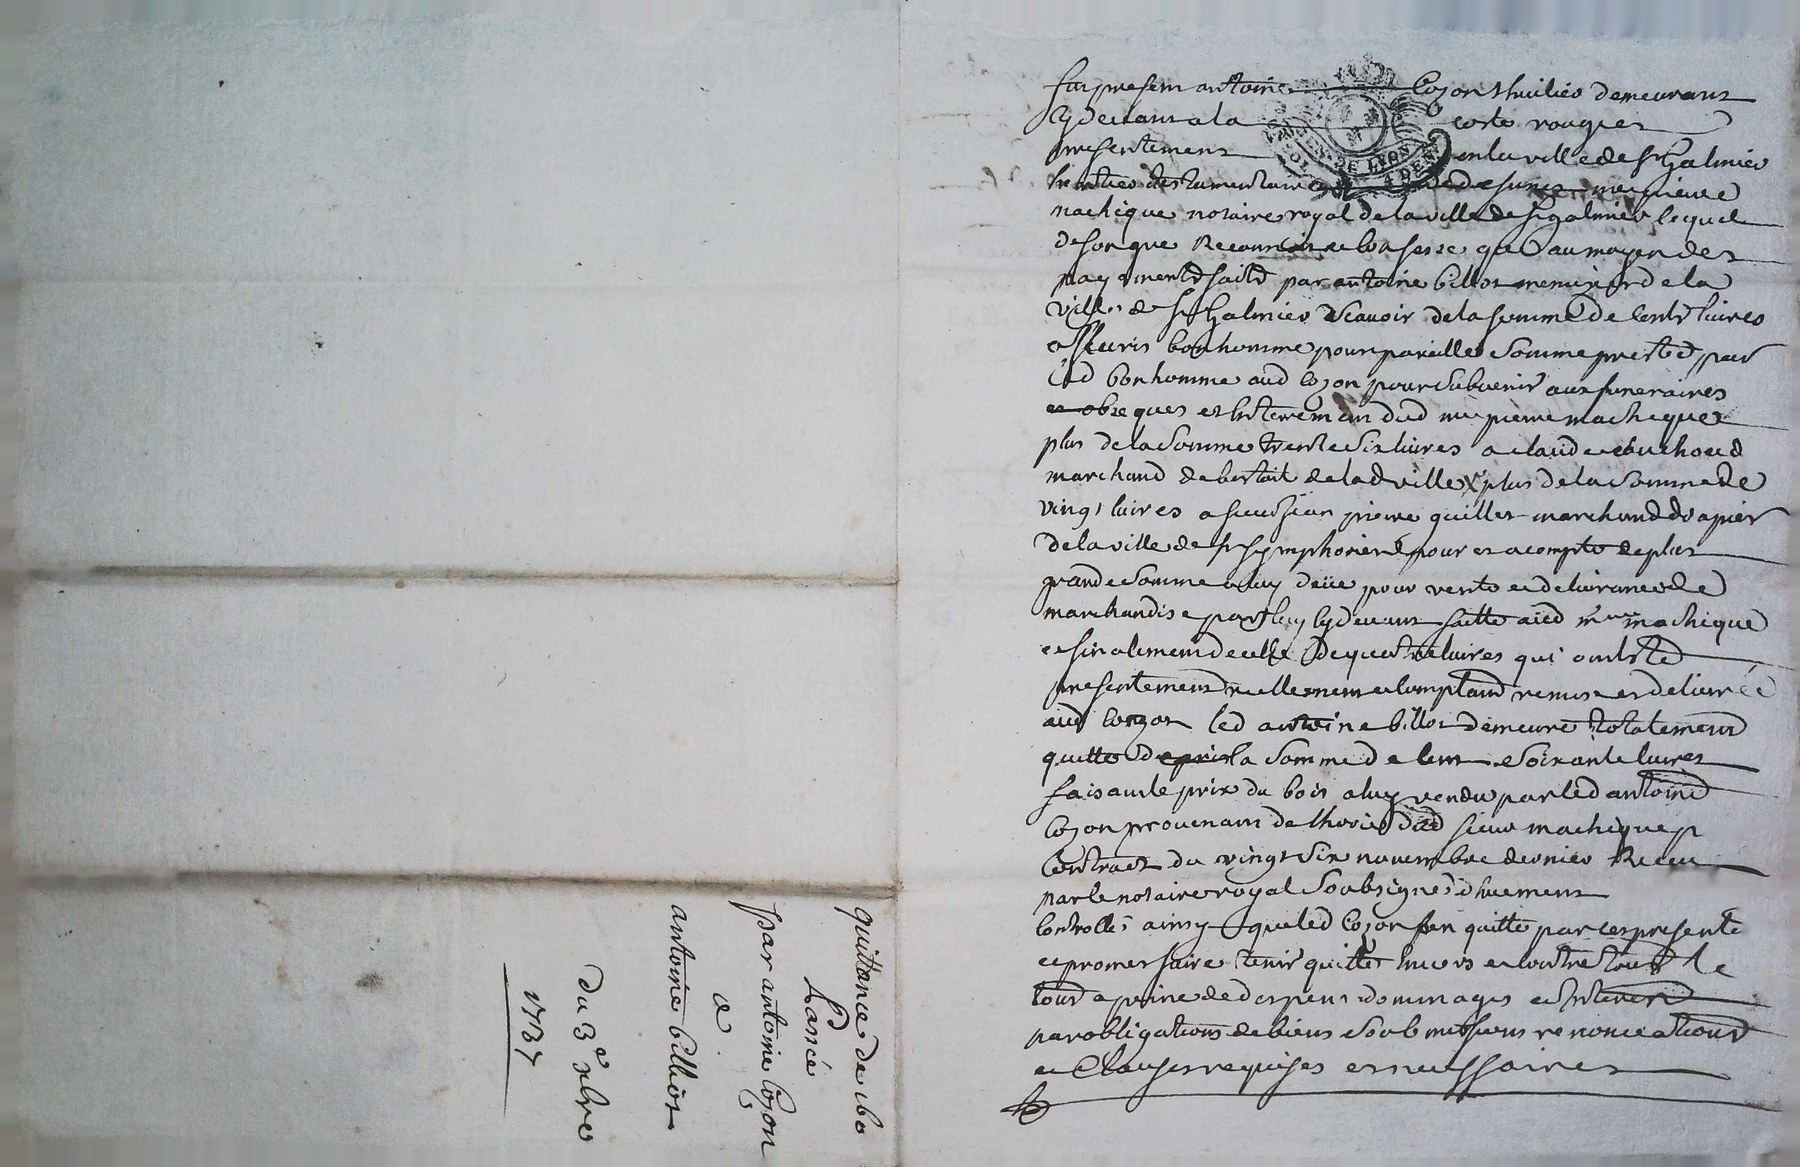 fut present antoine Cozon thuilier demeurant
cy devant a la coste rouques
presentement en la ville de st galmier
heritier testamentaire de deffunct me pierre
machique notaire royal de la ville de st galmier lequel
de son gre Reconnoit et Confesse que au moyen des
payements faits par antoine billot menuizier de la
Ville de st galmier scavoir de la somme de Cents livres
a bonhomme pour pareille Somme prestée par
led bonhomme aud Cozon pour Subvenir aux funeraires
et obseques et Enterement dud me pierre machique
plus de la Somme trente Six livres a claude
marchand de de lad ville plus de la Somme de
vingt livres a sieur pierre quillet marchand drapier
de la ville de st symphorien pour et a compte de plus
grande Somme a luy deüe pour vente et delivrance de
marchandise par luy cy devant faitte aud me machique
et finalement de celle De quatre livres qui ont Esté
presentement reellement et Comptand remise et delivrée
aud Cozon led antoine billot demeure totalement
quitte de la Somme de Cent Soixante livres
faisant le prix du bois a luy vendu par led antoine
Cozon provenant de lhoirie dud sieur machique p
Contract du vingt Six novembre dernier Receu
par le notaire royal Soubsigné dhuement
Controllé ainsy que led Cozon len quitte par ces presente
et promet faire tenir quitte Envers et Contre tous le
tout a peine de despens dommages et Interest
par obligations de biens Soubmissions renonciations
et Clauses requises et necessaires
quittance de 160
L passée
par antoine Cozon
a
antoine billiot
du 3e xbre
1737